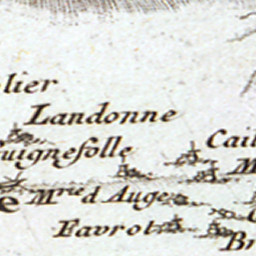 lier
Landonne
uignesolle
Cail
M
e Mrie d Auge
Favrol
Br